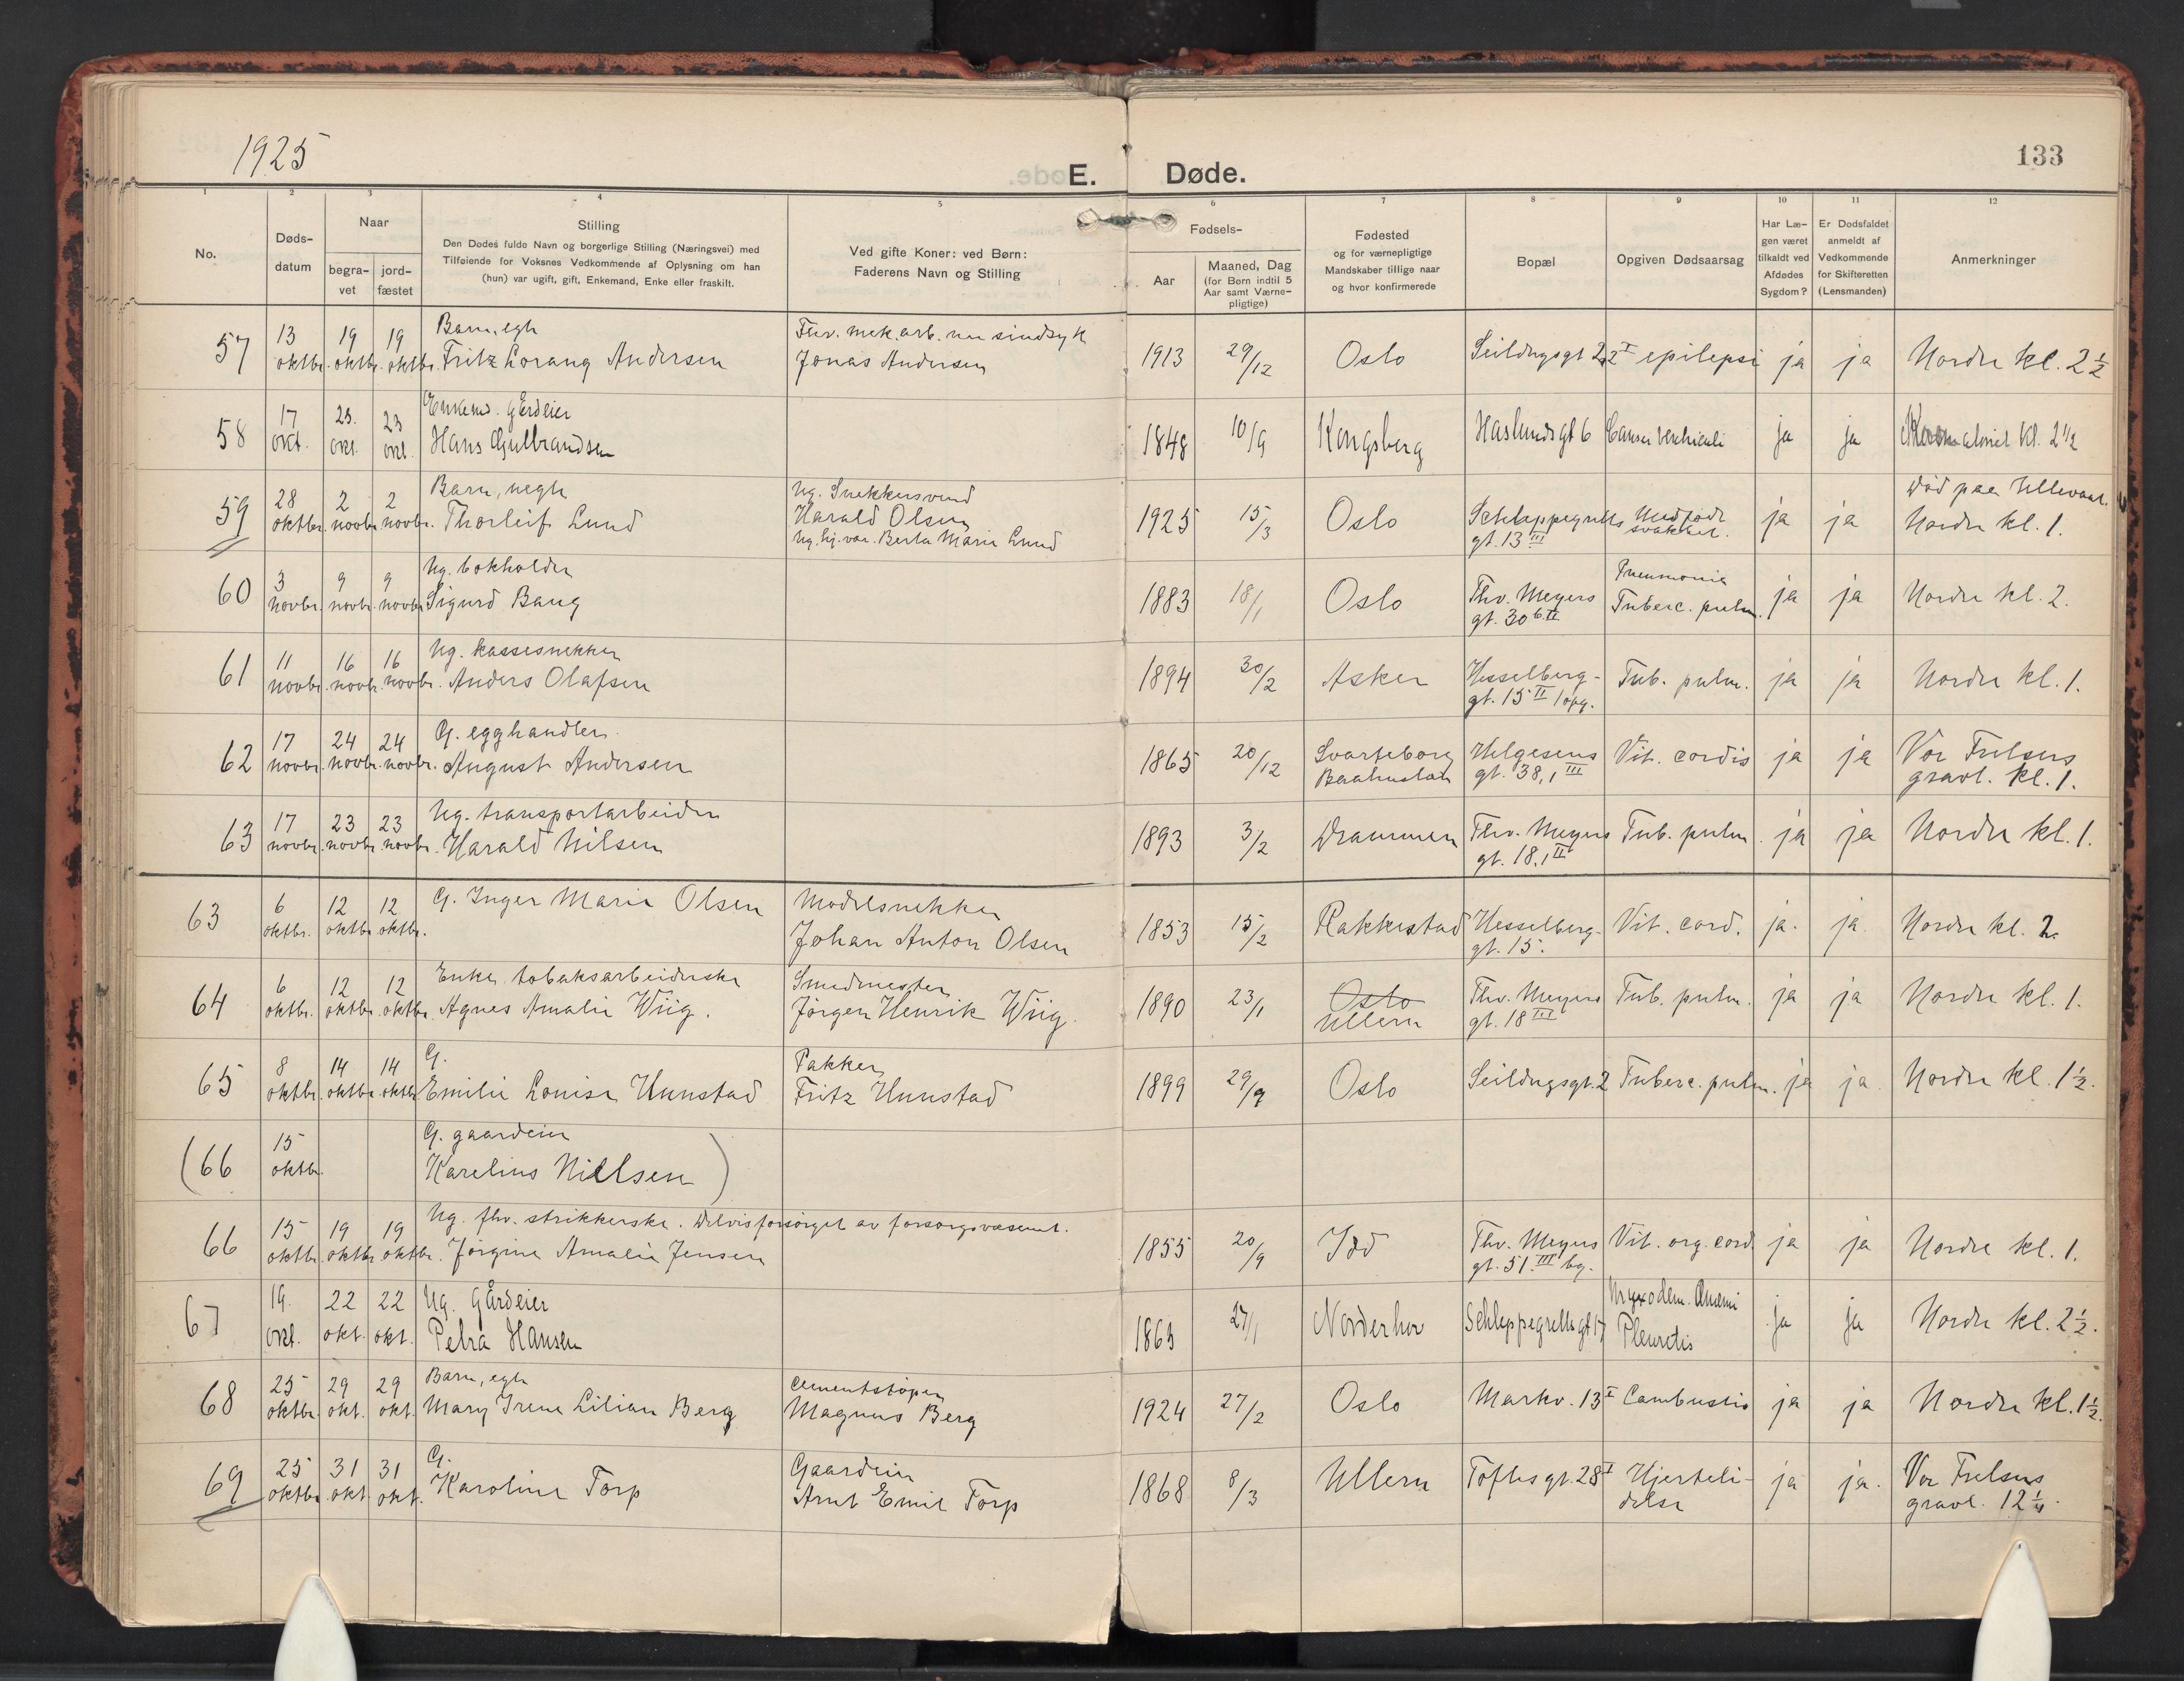 1925
E. Døde.
133
1 2 3 4 5 6 7 8 9 10 11 12
No.
Døds-
datum
Naar
begra-
vet
jord-
fæstet
Stilling
Den Dødes fulde Navn og borgerlige Stilling (Næringsvei) med
Tilføiende for Voksnes Vedkommende af Oplysning om han
(hun) var ugift, gift, Enkemand, Enke eller fraskilt.
Ved gifte Koner: ved Børn:
Faderens Navn og Stilling
Fødsels-
Aar
Maaned, Dag
(for Børn indtil 5
Aar samt Værne-
pligtige)
Fødested
og for værnepligtige
Mandskaber tillige naar
og hvor konfirmerede
Bopæl
Opgiven Dødsaarsag
Har Læ-
gen været
tilkaldt ved
Afdødes
Sygdom?
Er Dødsfaldet
anmeldt af
Vedkommende
for Skifteretten
(Lensmanden)
Anmerkninger
Barn, egte Fhv. mek. arb. nu sindsyk
57 13 oktbr. 19 oktbr. 19 oktbr. Fritz Lorang Andersen Jonas Andersen 1913 29/12 Oslo Seildugsgt 22 I epilepsi ja ja Nordre kl. 2 1/2
Enkemd. Gårdeier
58 17 okt. 23. okt. 23 okt. Hans Gulbrandsen 1848 10/9 Kongsberg Haslunds gt 6 Cancer ventriculi ja ja kl. 2 1/2
Barn, uegte Ug. Snekkersvend Død paa Ullevaal.
59 28 oktbr. 2 novbr. 2 novbr. Thorleif Lund Harald Olsen 1925 15/3 Oslo Schleppegrells gt. 13 III Medfødt svakhet. ja ja Nordre kl. 1.
Ug. hj. var. Berta Marie Lund
Ug. bokholder
60 3 novbr. 9 novbr. 9 novbr. Sigurd Bang 1883 18/1 Oslo Thv. Meyers gt. 30 b. II Pneumonia Tuberc. pulm. ja ja Nordre kl. 2.
Ug. kassesnekker
61 11 novbr. 16 novbr. 16 novbr. Anders Olafsen 1894 30/2 Asker Hesselberg- gt. 15 II 1 opg. Tub. pulm. ja ja Nordre kl. 1.
G. egghandler.
62 17 novbr. 24 novbr. 24 novbr. August Andersen 1865 20/12 Svarteborg Baahuslän Helgesens gt. 38, 1 III Vit. cordis ja ja Vor Frelsers gravl. kl. 1.
Ug. transportarbeider
63 17 novbr. 23 novbr. 23 novbr. Harald Nilsen 1893 3/2 Drammen Thv. Meyers gt. 18, 1 II Tub. pulm. ja ja Nordre kl. 1.
63 6 oktbr. 12 oktbr. 12 oktbr. G. Inger Marie Olsen Modelsnekker Johan Anton Olsen 1853 15/2 Rakkestad Hesselberg- gt. 15. Vit. cord. ja. ja. Nordre kl. 2.
Enke, tobaksarbeiderske Smedmester
64 6 oktbr. 12 oktbr. 12 oktbr. Agnes Amalie Wiig. Jörgen Henrik Wiig. 1890 23/1 Oslo Ullern Thv. Meyers gt. 18 III Tub. pulm. ja ja Nordre kl. 1.
G. Pakker
65 8 oktbr. 14 oktbr. 14 oktbr. Emilie Louise Hunstad Fritz Hunstad 1899 29/9 Oslo Seildugsgt. 2 Tuberc. pulm. ja ja. Nordre kl. 1 1/2.
G. gaardeier
(66 15 oktbr. Karelius Nielsen)
Ug. fhv. strikkerske. Delvis forsørget av forsorgsvæsenet.
66 15 oktbr. 19 oktbr. 19 oktbr. Jörgine Amalie Jensen 1855 20/9 Idd Thv. Meyers gt. 51. III bg. Vit. org. cord. ja ja Nordre kl. 1.
67 19. okt. 22 okt. 22 okt. Ug. Gårdeier Petra Hansen 1865 27/1 Norderhov Schleppegrells gt 17 Myxødem. Anæmi Pleuritis ja ja Nordre kl. 2 1/2.
Barn, egte Cementstøper
68 25 oktbr. 29 okt. 29 okt. Mary Irene Lilian Berg Magnus Berg 1924 27/2 Oslo Markv. 13 I Combustio ja ja Nordre kl. 1 1/2.
G. Gaardeier
69 25 oktbr. 31 okt. 31 okt. Karoline Torp Arnt Emil Torp 1868 8/3 Ullern Toftes gt. 28 I Hjerteli- delse ja ja. Vor Frelsers gravl. 12 1/4.